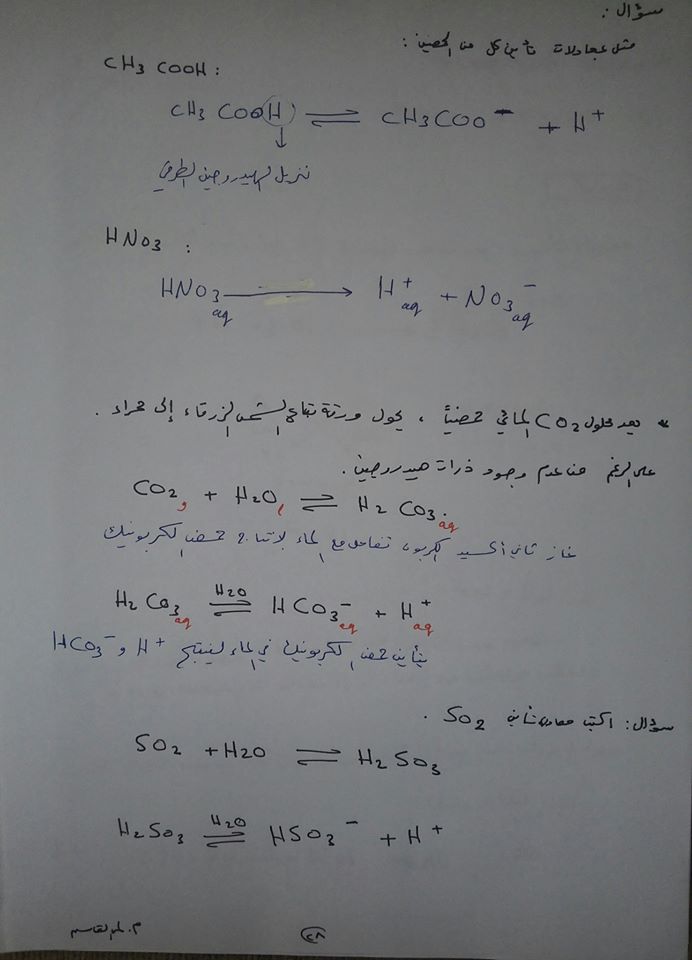 سؤال :
مثل بمعادلات تأين كل من الحمضين :
CH3 COOH :
CH3 COOH ⇌ CH3COO⁻ + H⁺
نزيل الهيدروجين الطرفي
HNO3 :
HNO3 aq → H⁺ aq + NO3⁻ aq
* يعد محلول CO2 المائي حمضياً ، يحول ورقة تباع الشمس الزرقاء إلى حمراء .
على الرغم من عدم وجود ذرات هيدروجين .
CO2 + H2O ⇌ H2 CO3 aq
غاز ثاني أكسيد الكربون تفاعل مع الماء لإنتاج حمض الكربونيك
H2 CO3 aq ⇌ H2O HCO3⁻ aq + H⁺ aq
يتأين حمض الكربونيك في الماء لينتج H⁺ و HCO3⁻
سؤال : اكتب معادلة تأين SO2 .
SO2 + H2O ⇌ H2 SO3
H2SO3 ⇌ H2O HSO3⁻ + H⁺